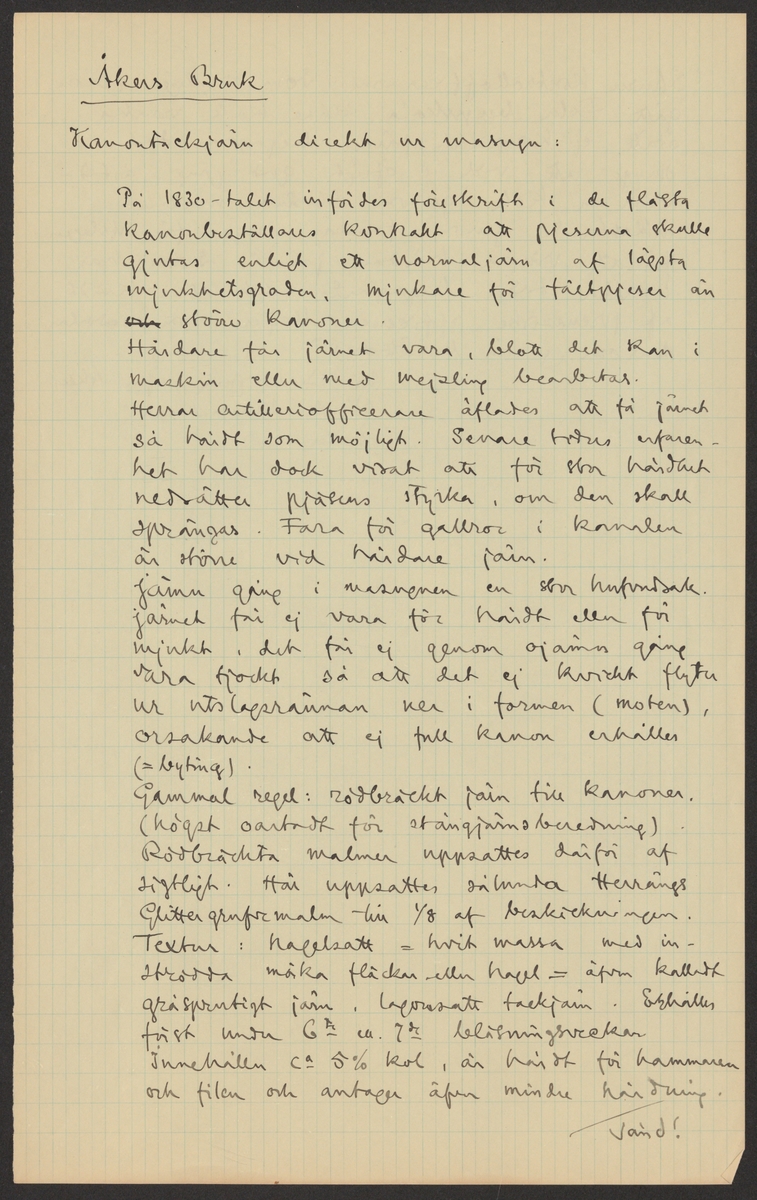 Åkers Bruk
Kanontackjärn direkt ur masugn:
På 1830-talet infördes föreskrift i de flästa
kanonbeställares kontrakt att pjeserna skulle
gjutas enligt ett normaljärn af lägsta
mjukhetsgraden, mjukare för fältpjeser än
och större kanoner.
Hårdare får järnet vara, blott det kan i
maskin eller med mejsling bearbetas.
Herrar artilleriofficerare äflades att få järnet
så hårdt som möjligt. Senare tiders erfaren-
het har dock visat att för stor hårdhet
nedsätter pjäsens styrka, om den skall
sprängas. Fara för gallror i kanalen
är större vid hårdare järn.
Jämn gång i masugnen en stor hufvudsak.
Järnet får ej vara för hårdt eller för
mjukt, det får ej genom ojämn gång
vara tjockt så att det ej kvickt flyter
ur utslagsrännan ner i formen (moten),
orsakande att ej full kanon erhålles
(= byting).
Gammal regel: rödbräckt järn till kanoner.
(högst oartadt för stångjärnsberedning).
Rödbräckta malmer uppsattes därför af
sigtligt. Här uppsattes sålunda Herrängs
Glittergrufvemalm till 1/8 af beskickningen.
Textur: hagelsatt = hvit massa med in-
strödda mörka fläckar eller hagel = äfven kalladt
gråsprutigt järn, lagomsatt tackjärn. Erhålles
först under 6te ca. 7de blåsningsveckan
Innehåller ca 5% kol, är hårdt för hammaren
och filen och antager äfven mindre härdning.
Vänd!